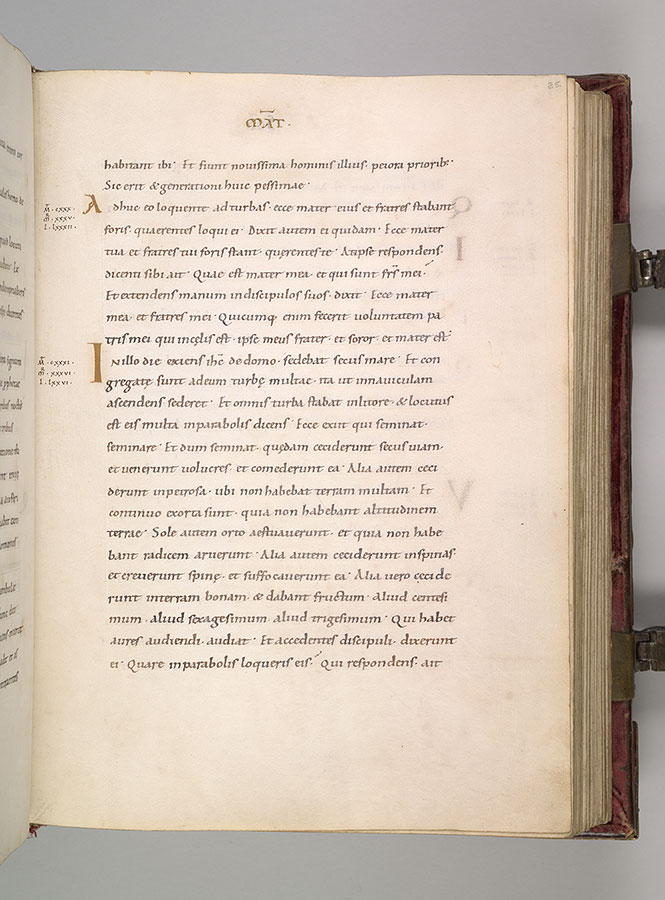 35
MAT·
habitant ibi· Et fiunt novissima hominis illius· peiora priorib;·
Sic erit & generationi huic pessimae·
M̄·CXXX·
M̄R·XXXV·
L·LXXXII·
Adhuc eo loquente ad turbas· ecce mater eius et fratres stabant
foris· quaerentes loqui ei· Dixit autem ei quidam· Ecce mater
tua et fratres tui foris stant· querentes te· At ipse respondens·
dicenti sibi ait· Quae est mater mea· et qui sunt frs̄ mei·
Et extendens manum in discipulos suos· dixit· Ecce mater
mea· et fratres mei· Quicumq; enim fecerit voluntatem pa
tris mei qui in cęlis est· ipse meus frater· et soror· et mater est·
M̄·CXXXI·
M̄R·XXXVI·
L·LXXVI·
In illo die exiens ihc̄ de domo· sedebat secus mare· Et con
gregatę sunt ad eum turbę multae· ita ut in naviculam
ascendens sederet· Et omnis turba stabat in litore· & locutus
est eis multa in parabolis dicens· Ecce exiit qui seminat·
seminare· Et dum seminat· quędam ceciderunt secus viam·
et venerunt volucres· et comederunt ea· Alia autem ceci
derunt in petrosa· ubi non habebat terram multam· Et
continuo exorta sunt· quia non habebant altitudinem
terrae· Sole autem orto aestuaverunt· et quia non habe
bant radicem aruerunt· Alia autem ceciderunt in spinas·
et creverunt spinę· et suffocaverunt ea· Alia vero cecide
runt in terram bonam· & dabant fructum· aliud centesi
mum· aliud sexagesimum· aliud trigesimum· Qui habet
aures audiendi· audiat· Et accedentes discipuli· dixerunt
ei· Quare in parabolis loqueris eis· Qui respondens· ait